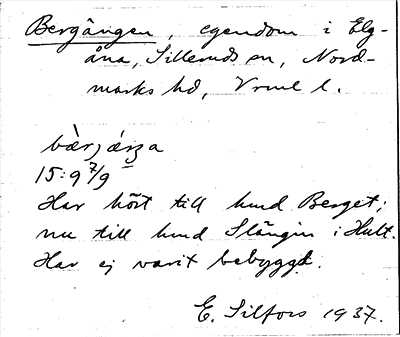 Bergängen, egendom i Elg-
åna, Silleruds sn, Nord-
marks hd, Vrml l.
bær
15:9 7/9
Har hört till hmd Berget;
nu till hmd Slängin i Hult.
Har ej varit bebyggd.
E. Silfors 1937.